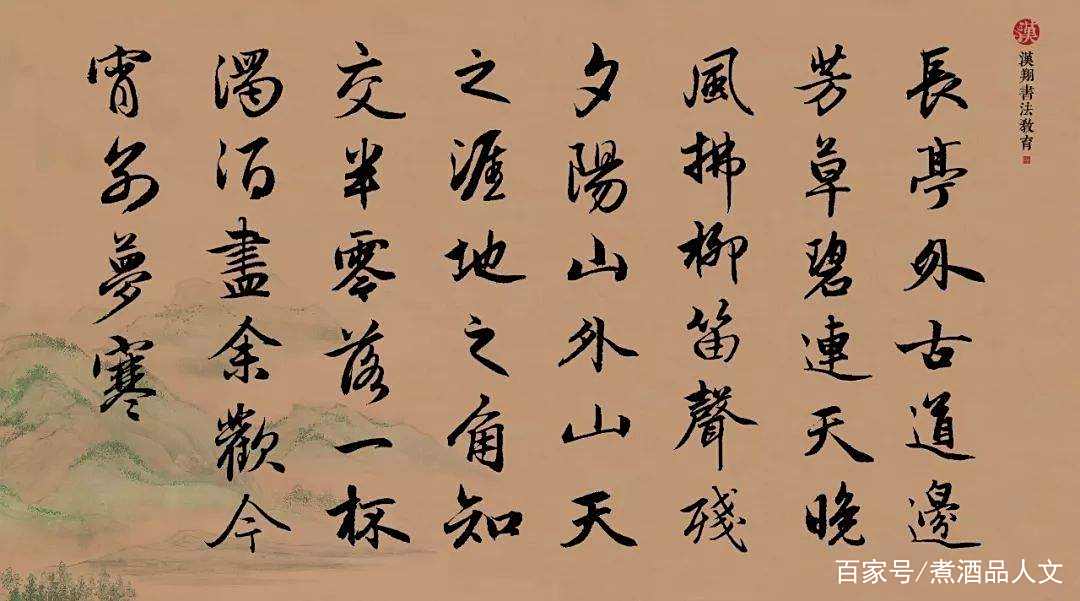 漢
漢翔書法教育
長亭外古道邊
芳草碧連天晚
風拂柳笛聲殘
夕陽山外山天
之涯地之角知
交半零落一杯
濁酒盡余歡今
宵別夢寒
百家号/煮酒品人文